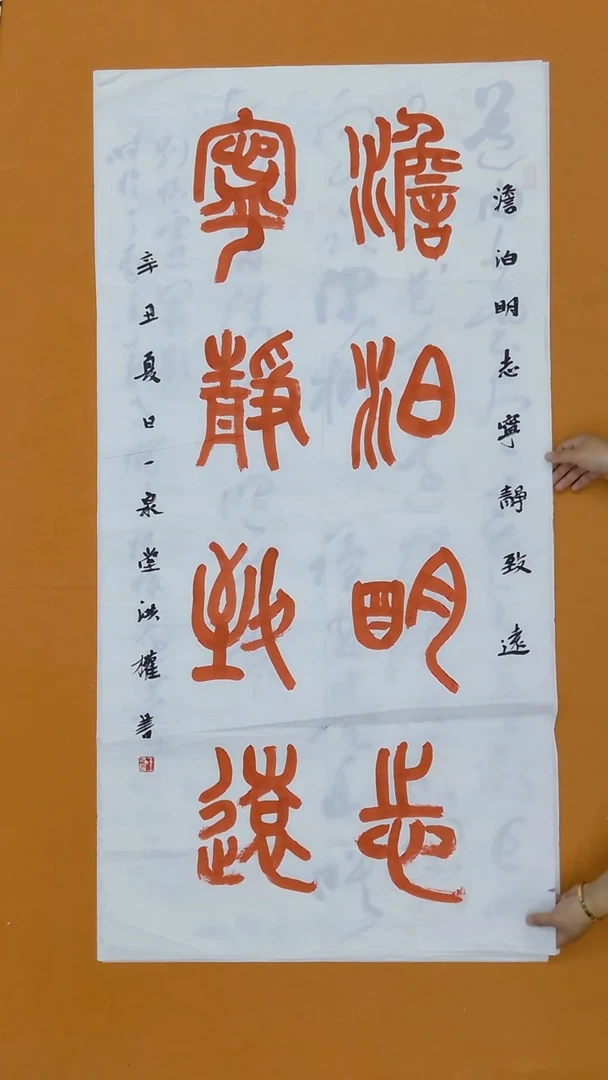 澹泊明志寧靜致遠
澹泊明志
寧靜致遠
辛丑夏日一泉堂洪權書